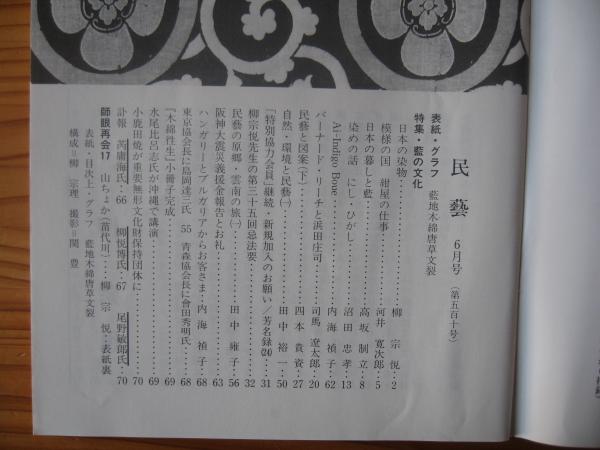 民藝 6月号 (第五百十号)
表紙・グラフ 藍地木綿唐草文裂
特集・藍の文化
日本の染物……柳 宗悦…2
模様の国 紺屋の仕事……河井 寛次郎…5
日本の暮しと藍……高坂 制立…8
染めの話 にし・ひがし……沼田 忠孝…13
Ai-Indigo Boue……内海 禎子…62
バーナード・リーチと浜田庄司……司馬 遼太郎…20
民藝と図案(下)……四本 貴資…27
自然・環境と民藝(一)……田中 裕一…50
「特別協力会員」継続・新規加入のお願い/芳名録(24)…31
柳宗悦先生の第三十五回忌法要……32
民藝の原郷・雲南の旅(一)……田中 雍子…56
阪神大震災義援金報告とお礼……63
ハンガリーとブルガリアからお客さま…内海 禎子…68
東京協会長に島岡達三氏 55 青森協会長に會田秀明氏…68
『木綿性生』小冊子完成……69
水尾比呂志氏が沖縄で講演……69
小鹿田焼が重要無形文化財保持団体に……70
訃報 芮庸海氏…66 柳悦博氏…67 尾野敏郎氏…70
師眼再会17 山ちょか(苗代川)…柳 宗悦…表紙裏
表紙・目次上・グラフ 藍地木綿唐草文裂
構成=柳 宗理 撮影=関 豊